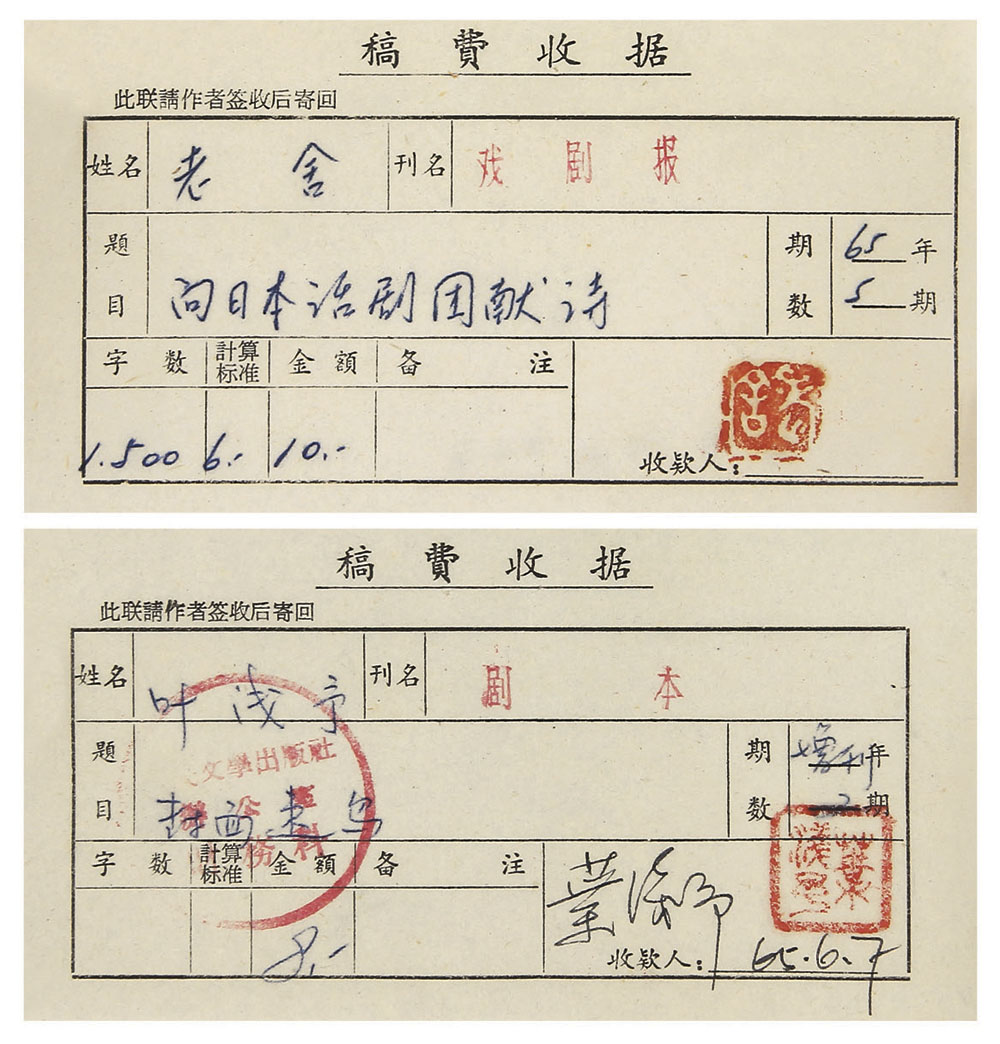 稿費收据
此联請作者签收后寄回
姓名 老舍 刊名 戏剧报
題目 向日本话剧团献诗 期数 65年 5期
字数 計算标准 金額 备注
1.500 6.- 10.-
收欵人：
老舍
稿費收据
此联請作者签收后寄回
姓名 叶浅予 刊名 剧本
題目 封面速写 期数 增刊年 2期
文學出版社
務科
字数 計算标准 金額 备注
8.-
葉浅予
收欵人： 65.6.7